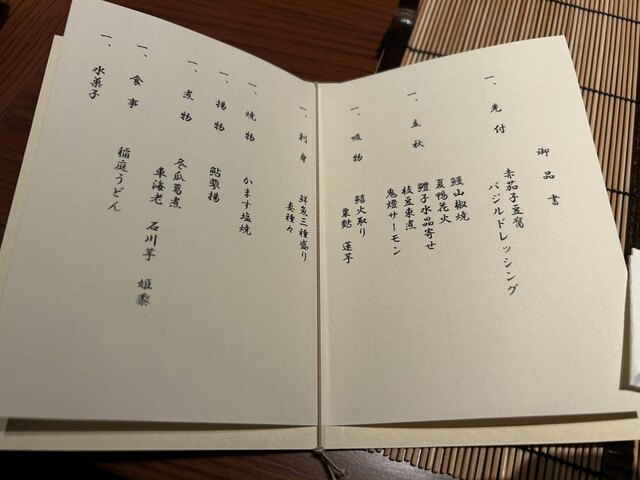 御品書
一、先付
赤茄子豆腐
バジルドレッシング
一、立秋
鰻山椒焼
夏鴨花火
鱧子水晶寄せ
枝豆東煮
鬼燈サーモン
一、吸物
火取り
粟麩 蓮芋
一、刺身
鮮魚三種盛り
妻種々
一、焼物
かます塩焼
一、揚物
鮎蓼揚
一、煮物
冬瓜葛煮
車海老 石川芋 姫黍
一、食事
稲庭うどん
一、水菓子